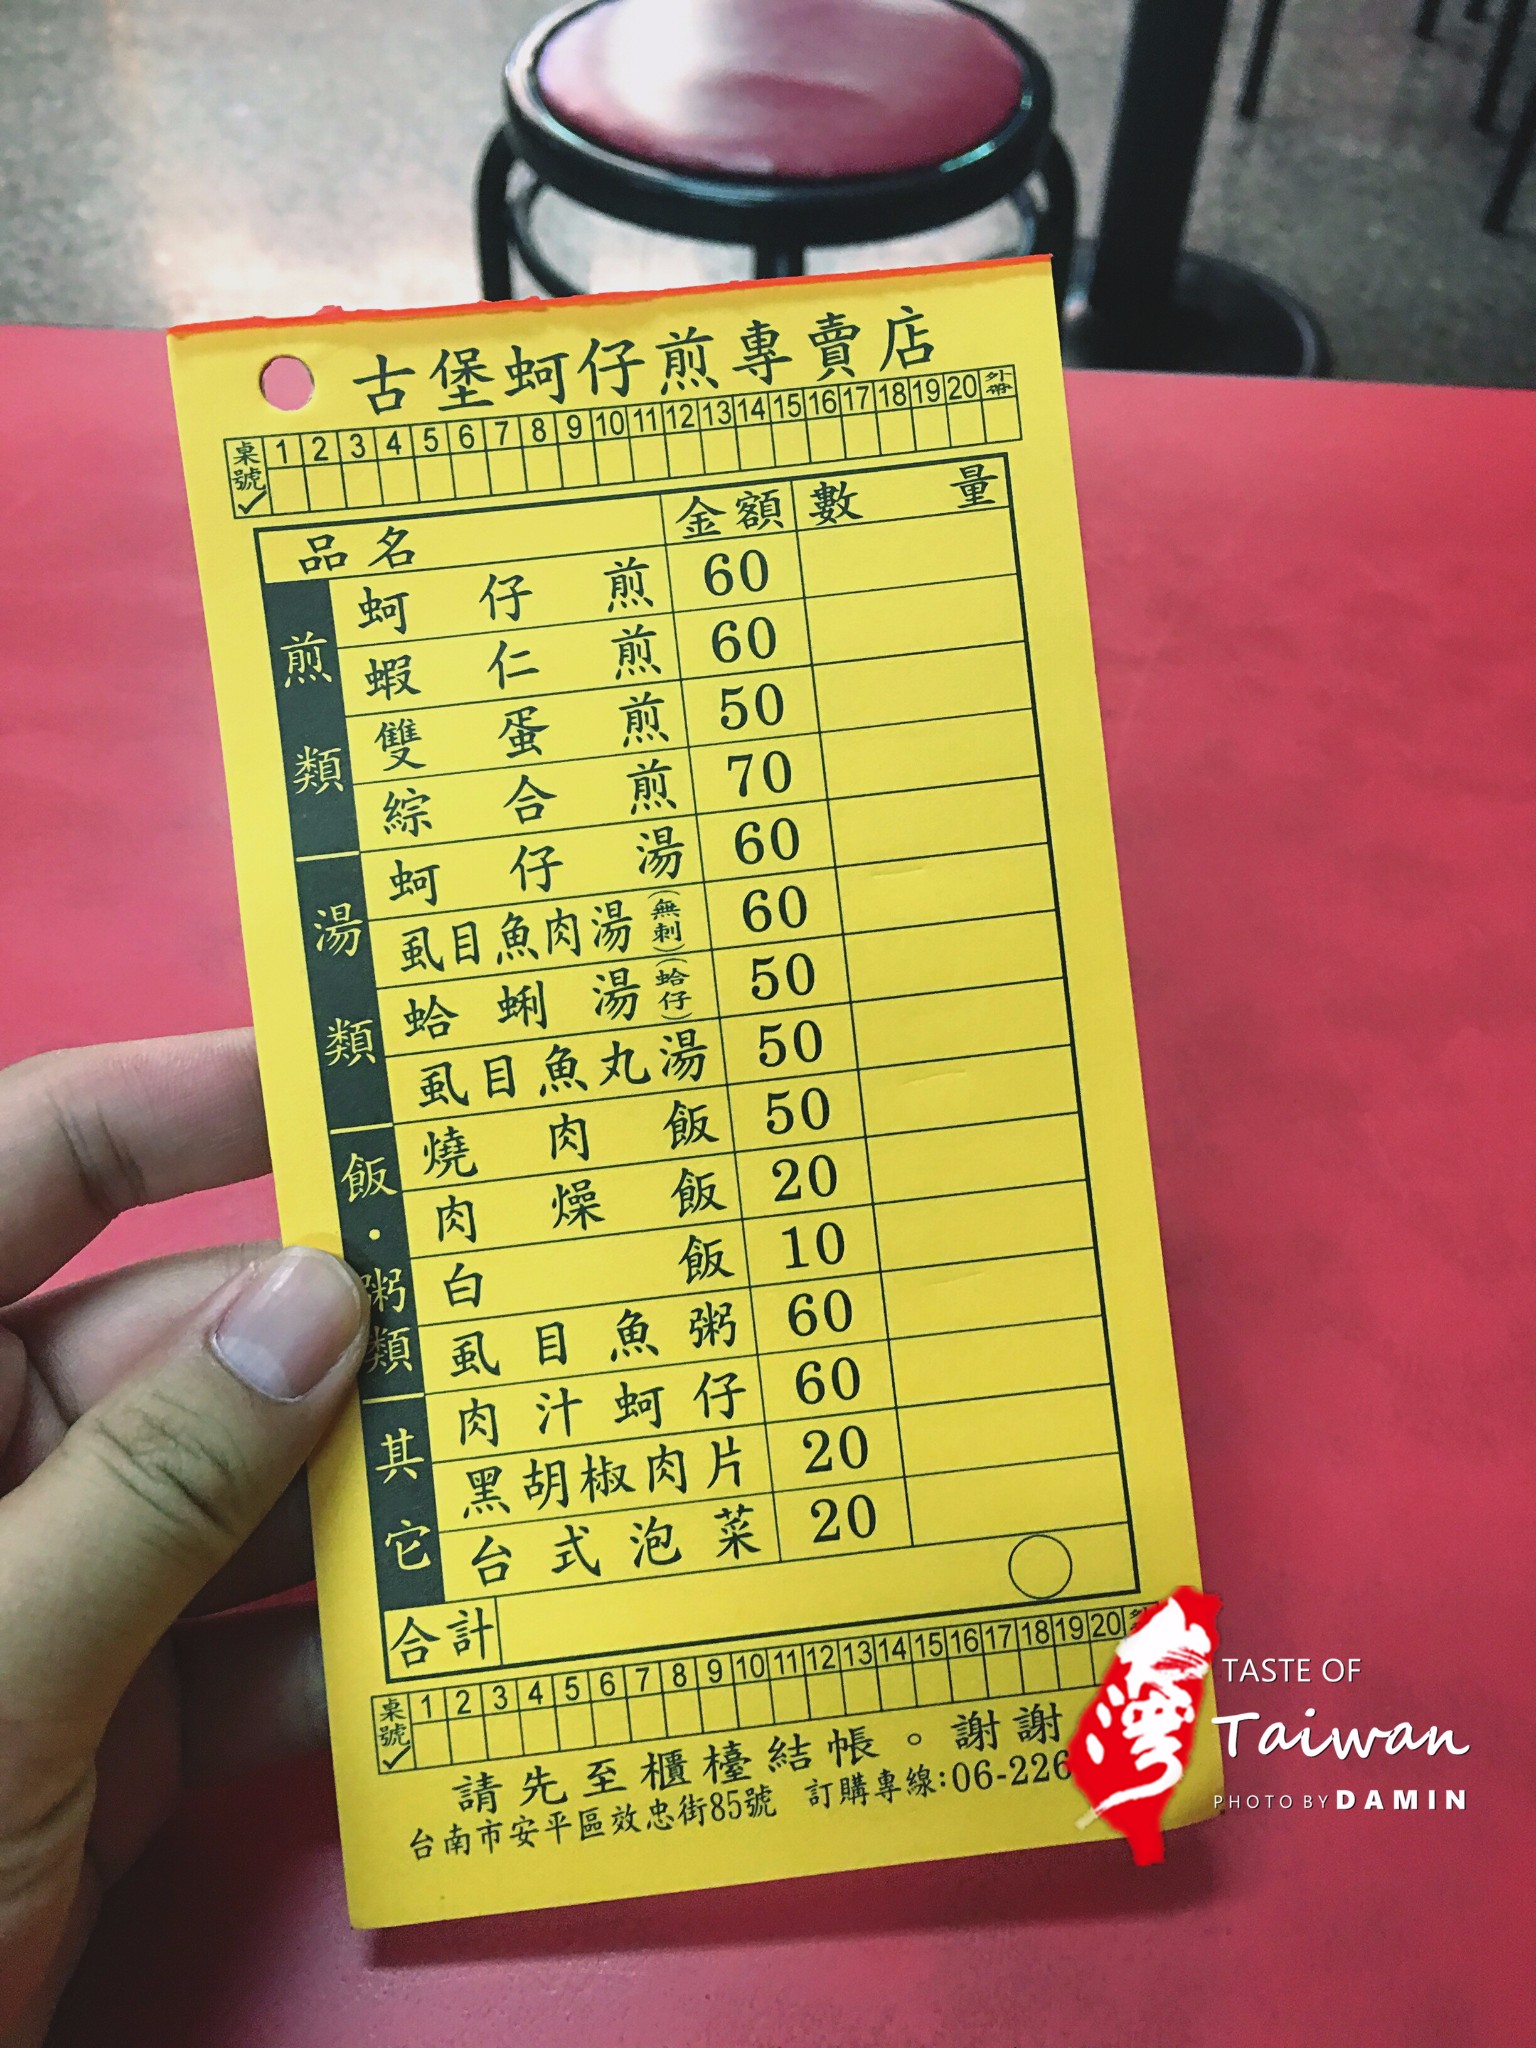 古堡蚵仔煎專賣店
桌號✓ 1 2 3 4 5 6 7 8 9 10 11 12 13 14 15 16 17 18 19 20 外帶
品名 金額 數量
煎類
蚵仔煎 60
蝦仁煎 60
雙蛋煎 50
綜合煎 70
湯類
蚵仔湯 60
虱目魚肉湯(無刺) 60
蛤蜊湯(蛤仔) 50
虱目魚丸湯 50
飯・粥類
燒肉飯 50
肉燥飯 20
白飯 10
虱目魚粥 60
其它
肉汁蚵仔 60
黑胡椒肉片 20
台式泡菜 20
合計
桌號✓ 1 2 3 4 5 6 7 8 9 10 11 12 13 14 15 16 17 18 19 20
請先至櫃檯結帳。謝謝
台南市安平區效忠街85號 訂購專線:06-226
台灣
TASTE OF
Taiwan
PHOTO BY DAMIN